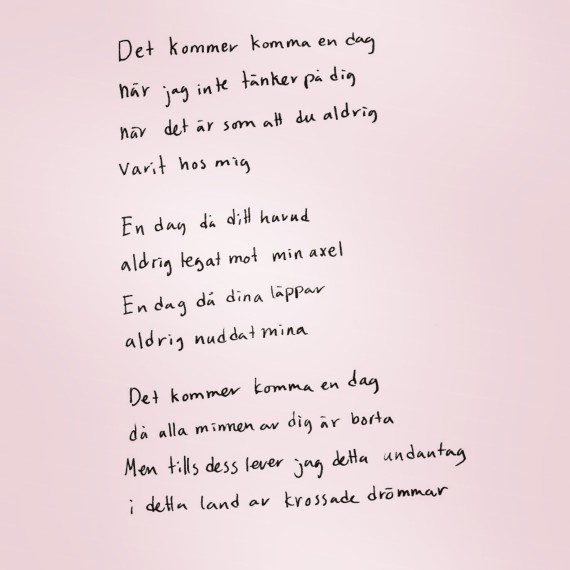 Det kommer komma en dag
när jag inte tänker på dig
när det är som att du aldrig
varit hos mig
En dag då ditt huvud
aldrig legat mot min axel
En dag då dina läppar
aldrig nuddat mina
Det kommer komma en dag
då alla minnen av dig är borta
Men tills dess lever jag detta undantag
i detta land av krossade drömmar